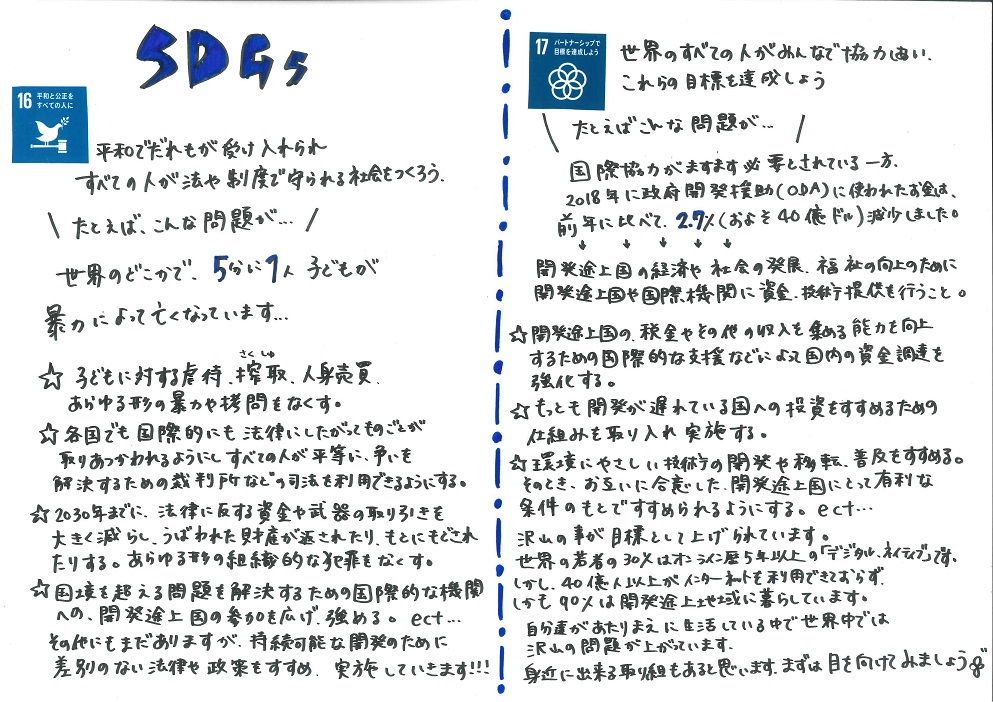 SDGs
16 平和と公正を
すべての人に
平和でだれもが受け入れられ
すべての人が法や制度で守られる社会をつくろう。
\ たとえば、こんな問題が… /
世界のどこかで、5分に1人 子どもが
暴力によって亡くなっています…
さくしゅ
☆ 子どもに対する虐待、搾取、人身売買、
あらゆる形の暴力や拷問をなくす。
☆ 各国でも国際的にも法律にしたがってものごとが
取りあつかわれるようにしすべての人が平等に、争いを
解決するための裁判所などの司法を利用できるようにする。
☆ 2030年までに、法律に反する資金や武器の取り引きを
大きく減らし、うばわれた財産が返されたり、もとにもどされ
たりする。あらゆる形の組織的な犯罪をなくす。
☆ 国境を超える問題を解決するための国際的な機関
への、開発途上国の参加を広げ、強める。ect…
その他にもまだありますが、持続可能な開発のために
差別のない法律や政策をすすめ、実施していきます!!!
17 パートナーシップで
目標を達成しよう
世界のすべての人がみんなで協力しあい、
これらの目標を達成しよう
\ たとえばこんな問題が… /
国際協力がますます必要とされている一方、
2018年に政府開発援助(ODA)に使われたお金は、
前年に比べて、2.7%(およそ40億ドル)減少しました。
↓ ↓ ↓ ↓ ↓
開発途上国の経済や社会の発展、福祉の向上のために
開発途上国や国際機関に資金、技術提供を行うこと。
☆ 開発途上国の、税金やその他の収入を集める能力を向上
するための国際的な支援などによって国内の資金調達を
強化する。
☆ もっとも開発が遅れている国への投資をすすめるための
仕組みを取り入れ実施する。
☆ 環境にやさしい技術の開発や移転、普及をすすめる。
そのとき、お互いに合意した、開発途上国にとって有利な
条件のもとですすめられるようにする。ect…
沢山の事が目標として上げられています。
世界の若者の30%はオンライン歴5年以上の「デジタル・ネイティブ」です。
しかし、40億人以上がインターネットを利用できておらず、
しかも90%は開発途上地域に暮らしています。
自分達があたりまえに生活している中で世界中では
沢山の問題が上がっています。
身近に出来る取り組もあると思います。まずは目を向けてみましょう